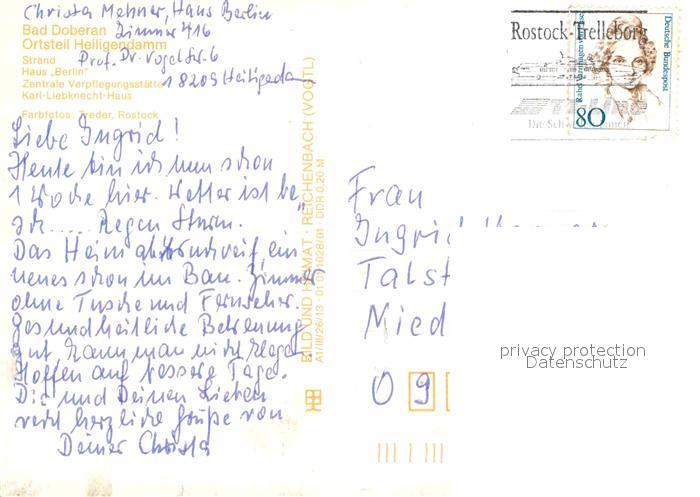 Christa Mehner, Haus Berlin
Zimmer 416
Prof. Dr. Vogel Str. 6
18209 Heiligendamm
Bad Doberan
Ortsteil Heiligendamm
Strand
Haus „Berlin"
Zentrale Verpflegungsstätte
Karl-Liebknecht-Haus
Farbfotos: Treder, Rostock
Liebe Ingrid!
Heute bin ich nun schon
1 Woche hier. Wetter ist be„
sch..... Regen Sturm.
Das Heim abbruchreif, ein
neues schon im Bau. Zimmer
ohne Dusche und Fernseher.
Gesundheitliche Betreuung
gut, kann man nicht klagen.
Hoffen auf bessere Tage.
Dir und Deinen Lieben
recht herzliche Grüße von
Deiner Christa
BILD UND HEIMAT · REICHENBACH (VOGTL)
A1/III/26/13 01 09 1028/01 DDR 0,20 M
Rostock-Trelleborg
Deutsche Bundespost
80
Frau
Ingrid
Talst
Nied
09
privacy protection
Datenschutz